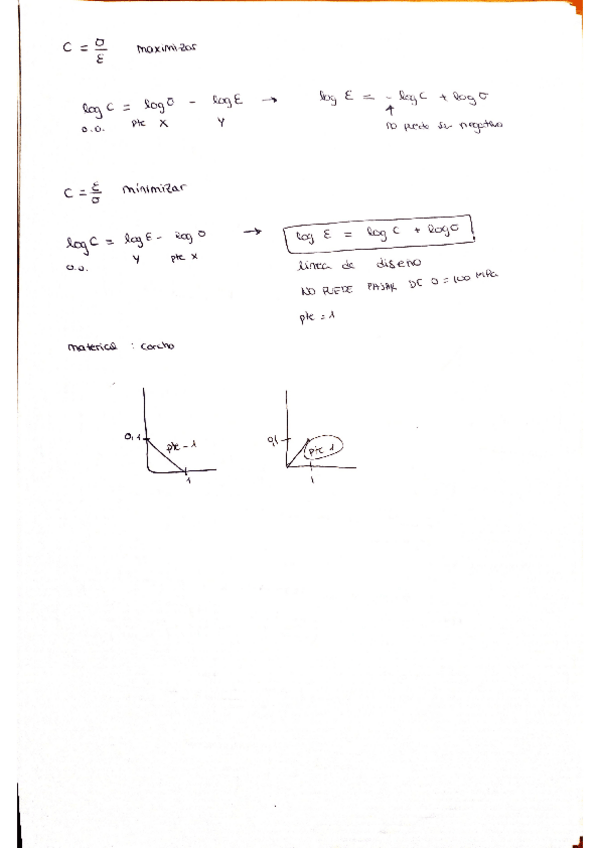 C = σ/ε maximizar
log C = log σ - log ε → log ε = - log C + log σ
o.o. pte X Y no puede ser negativo
C = ε/σ minimizar
log C = log ε - log σ → log ε = log C + log σ
o.o. Y pte X línea de diseño
NO PUEDE PASAR DE σ = 100 MPa
pte = 1
material : corcho
0,1 pte - 1 0,1 pte 1
1 1